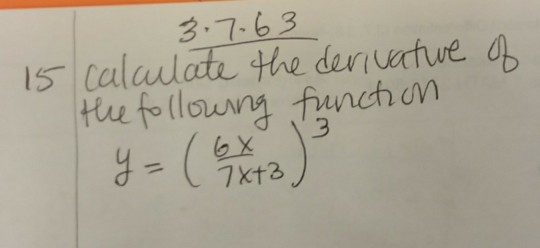 3.7.63
15 calculate the derivative of
the following function
y = (6x/7x+3)^3